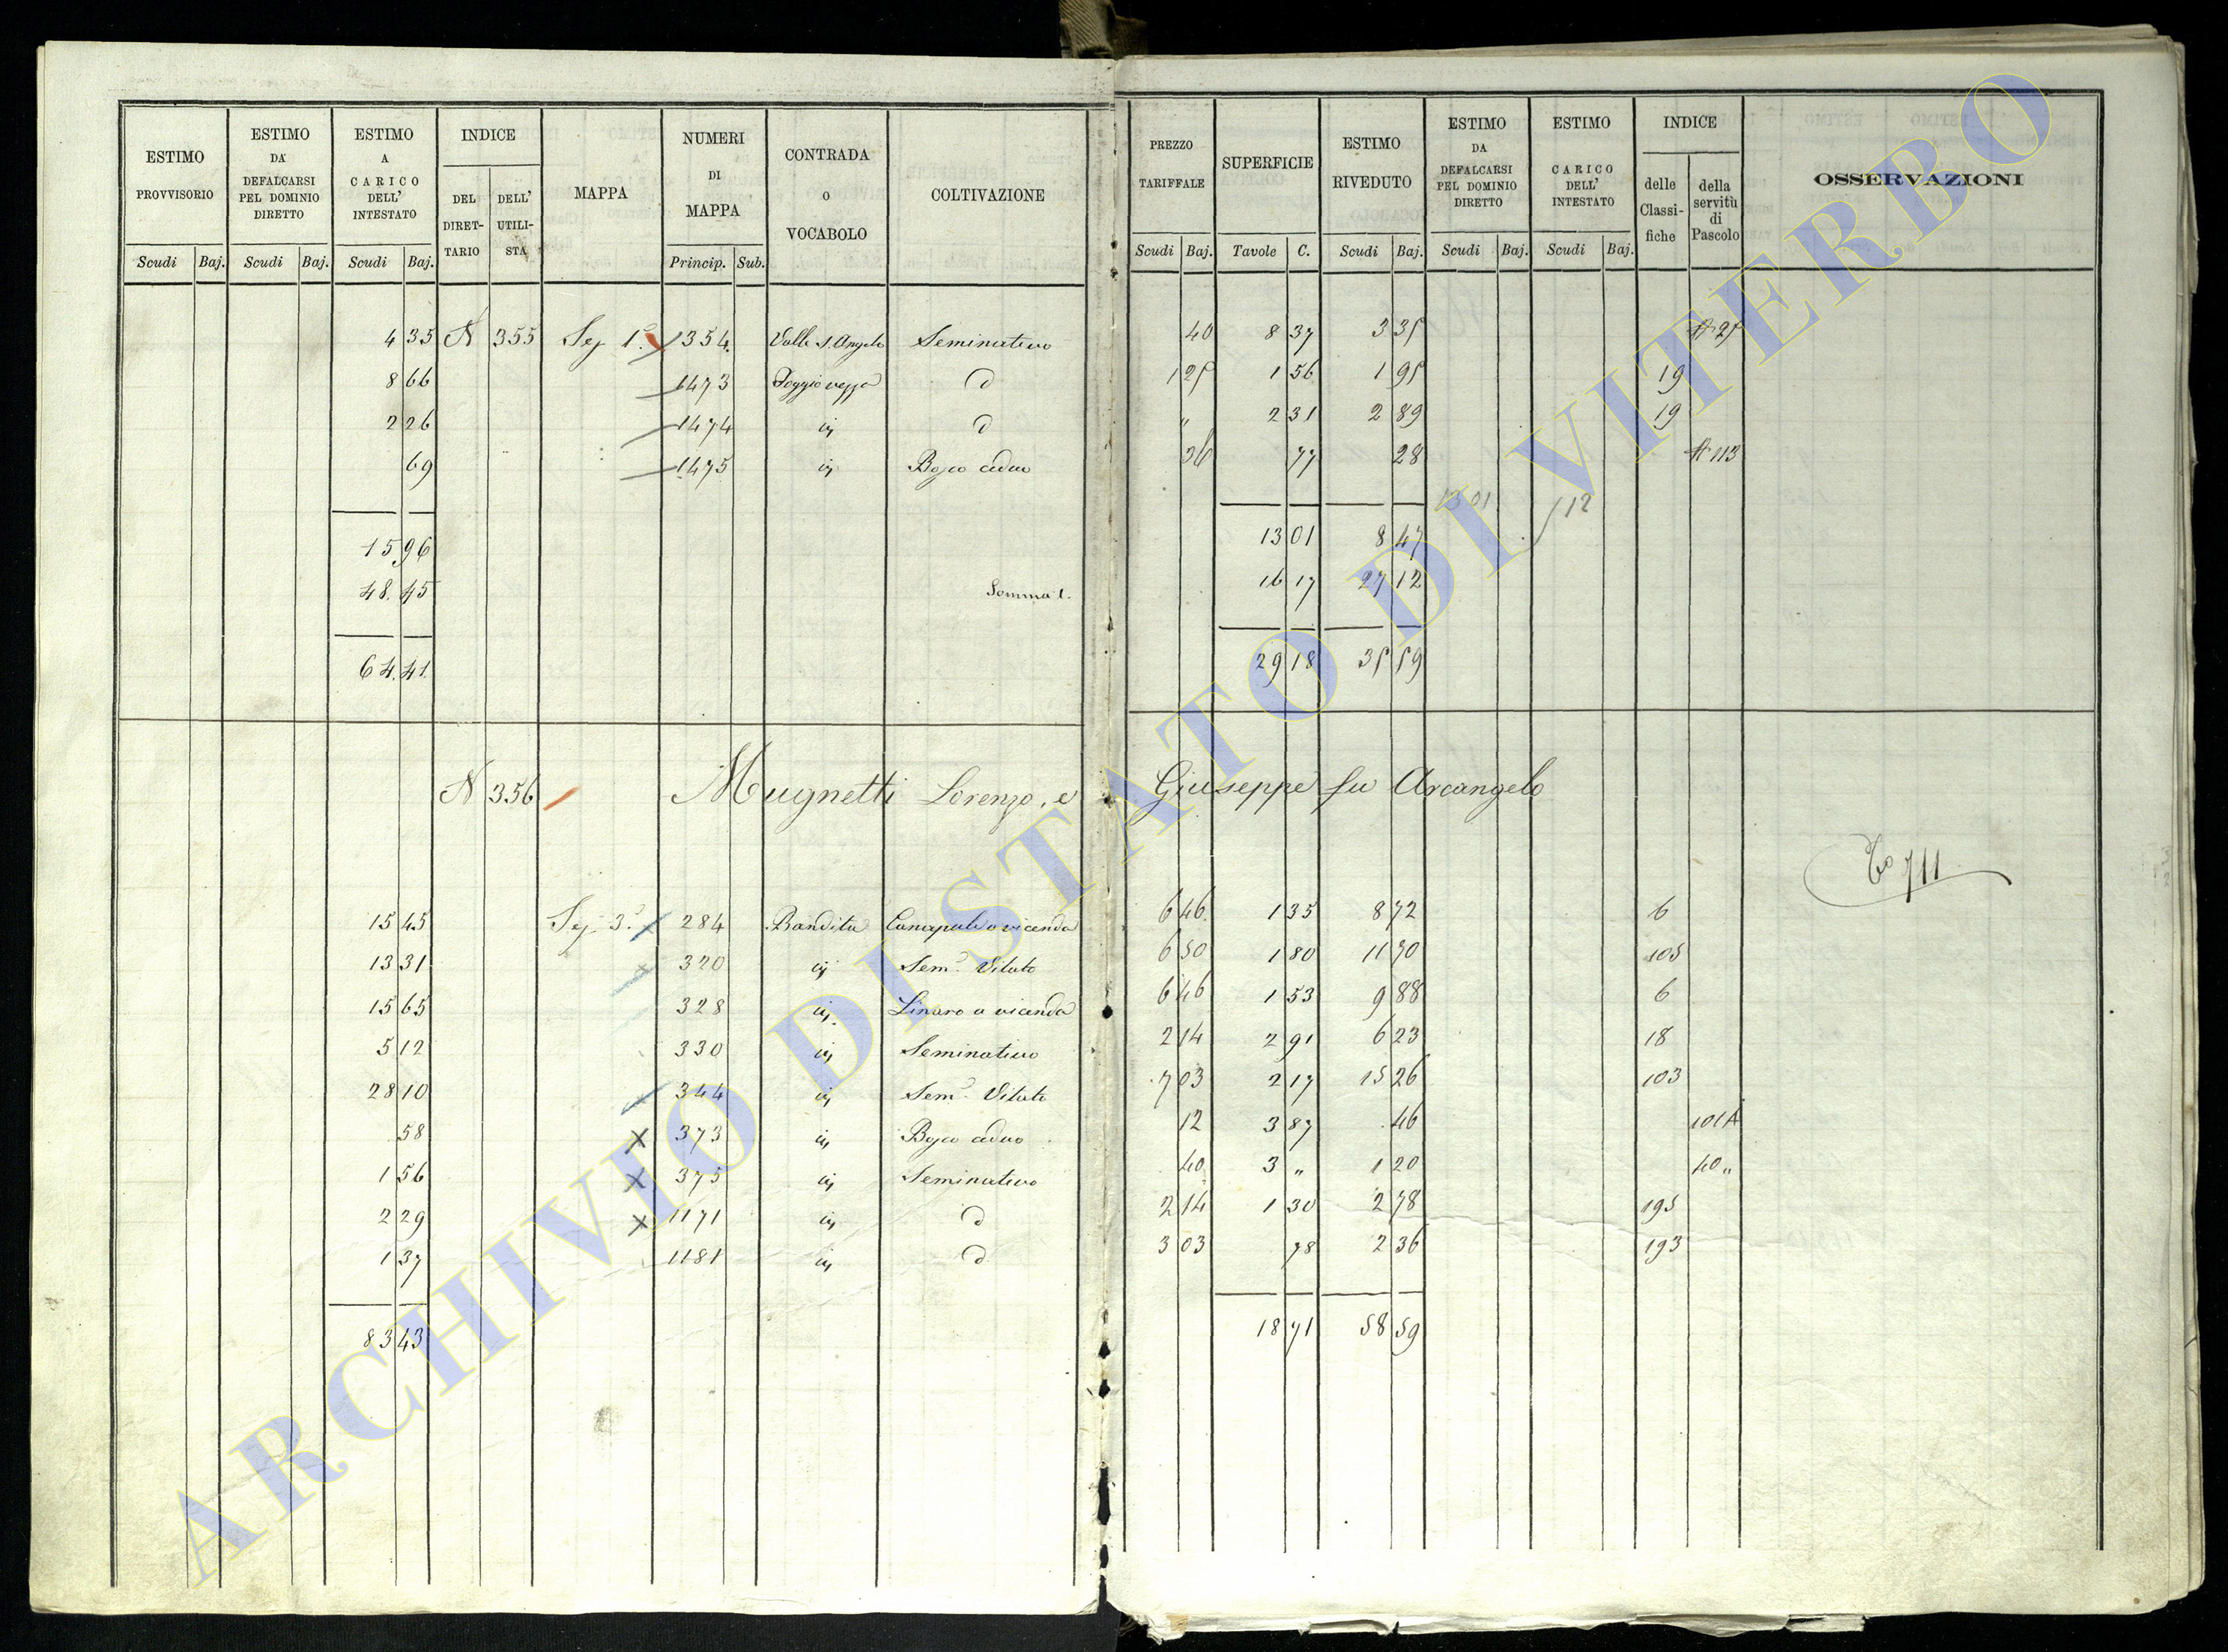 ESTIMO PROVVISORIO | ESTIMO DA DEFALCARSI PEL DOMINIO DIRETTO | ESTIMO A CARICO DELL' INTESTATO | INDICE | MAPPA | NUMERI DI MAPPA | CONTRADA O VOCABOLO | COLTIVAZIONE | PREZZO TARIFFALE | SUPERFICIE | ESTIMO RIVEDUTO | ESTIMO DA DEFALCARSI PEL DOMINIO DIRETTO | ESTIMO CARICO DELL' INTESTATO | INDICE | OSSERVAZIONI
DEL DIRETTARIO | DELL' UTILISTA | delle Classifiche | della servitù di Pascolo
Scudi | Baj. | Scudi | Baj. | Scudi | Baj. | Princip. | Sub. | Scudi | Baj. | Tavole | C. | Scudi | Baj. | Scudi | Baj. | Scudi | Baj.
4 35 | N 355 | Sez 1ª | 1354 | Valle S. Angelo | Seminativo | 40 | 8 37 | 3 35
8 66 | 1473 | d | 1 25 | 1 56 | 1 95 | 19
2 26 | 1474 | d | " | 2 31 | 2 89 | 19
69 | 1475 | Bosco ceduo | 36 | 77 | 28 | 113
13 01 | 12
15 96 | 13 01 | 8 47
48. 45 | Somma | 16 17 | 27 12
64. 41 | 29 18 | 35 59
N 356 | Mugnetti Lorenzo, e Giuseppe fu Arcangelo
711
15 45 | Sez 3ª | 284 | Bandita | Canapule a vicenda | 6 46 | 1 35 | 8 72 | 6
13 31 | 320 | Sem.º Vitato | 6 50 | 1 80 | 11 70 | 105
15 65 | 328 | Linaro a vicenda | 6 46 | 1 53 | 9 88 | 6
5 12 | 330 | Seminativo | 2 14 | 2 91 | 6 23 | 18
28 10 | 344 | Sem.º Vitato | 7 03 | 2 17 | 15 26 | 103
58 | 373 | Bosco ceduo | 12 | 3 87 | 46 | 101A
1 56 | 375 | Seminativo | 40 | 3 " | 1 20 | 40 "
2 29 | 1171 | d | 2 14 | 1 30 | 2 78 | 195
1 37 | 1181 | d | 3 03 | 78 | 2 36 | 193
83 43 | 18 71 | 58 59
ARCHIVIO DI STATO DI VITERBO